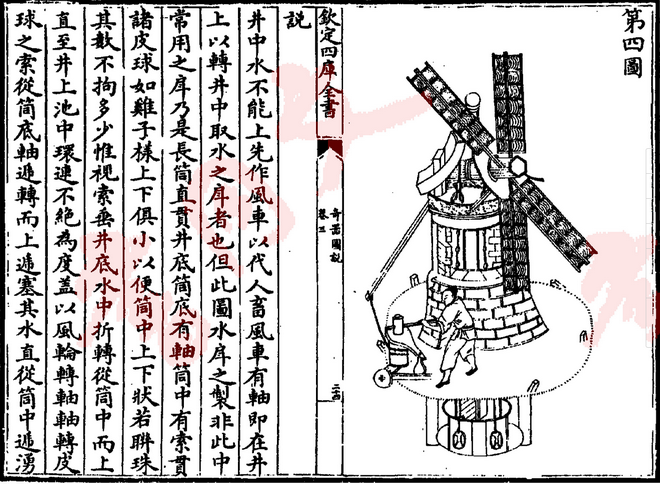 第四圖
欽定四庫全書
奇器圖說
卷三
說
井中水不能上先作風車以代人畜風車有軸即在井
上以轉井中取水之戽者也但此圖水戽之製非此中
常用之戽乃是長筒直貫井底筒底有軸筒中有索貫
諸皮球如雞子樣上下俱小以便筒中上下狀若聯珠
其數不拘多少惟視索垂井底水中折轉從筒中而上
直至井上池中環連不絕為度蓋以風輪轉軸軸轉皮
球之索從筒底軸遞轉而上遞塞其水直從筒中遞湧